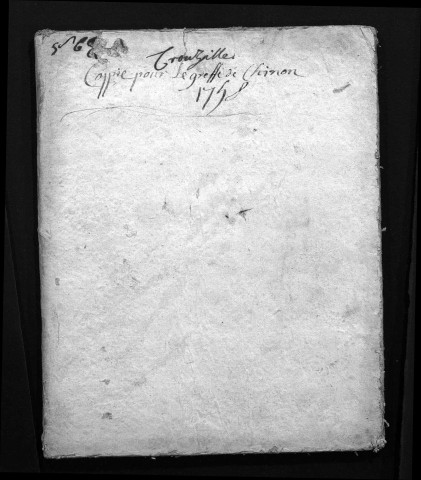 Treuzilles
Coppie pour Le greffe de Chinon
1758